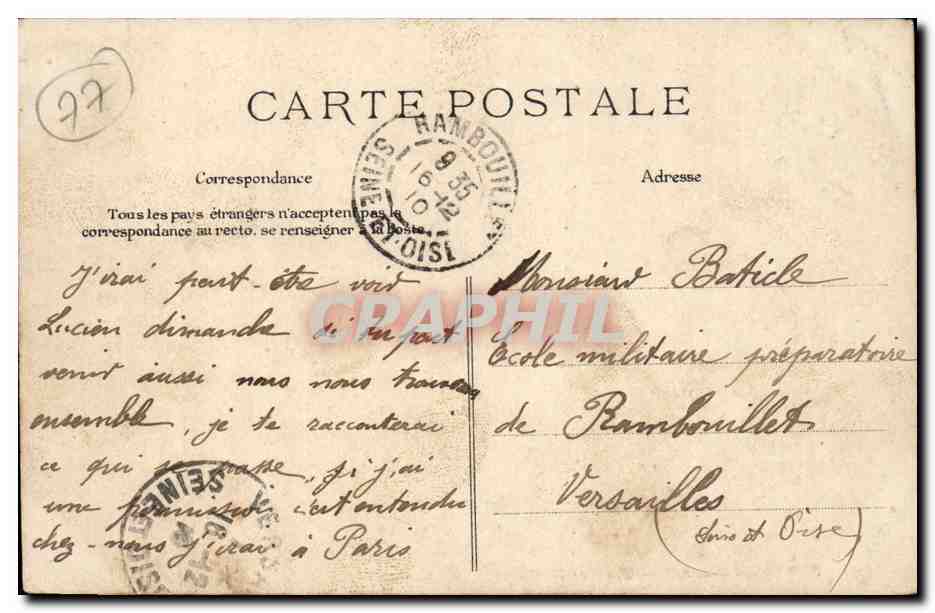 77
CARTE POSTALE
RAMBOUILLET
9 35
16 -12
10
SEINE-ET-OISE
Correspondance
Adresse
Tous les pays étrangers n'acceptent pas la
correspondance au recto. se renseigner à la Poste
J'irai peut-être voir
Lucien dimanche si tu peut
venir aussi nous nous trouverons
ensemble, je te racconterai
ce qui se passe, si j'ai
une permission c'est entendu
chez-nous j'irai à Paris
Monsieur Baticle
Ecole militaire préparatoire
de Rambouillet
Versailles
(Seine et Oise)
SEINE-ET-OISE
16-12
CRAPHIL